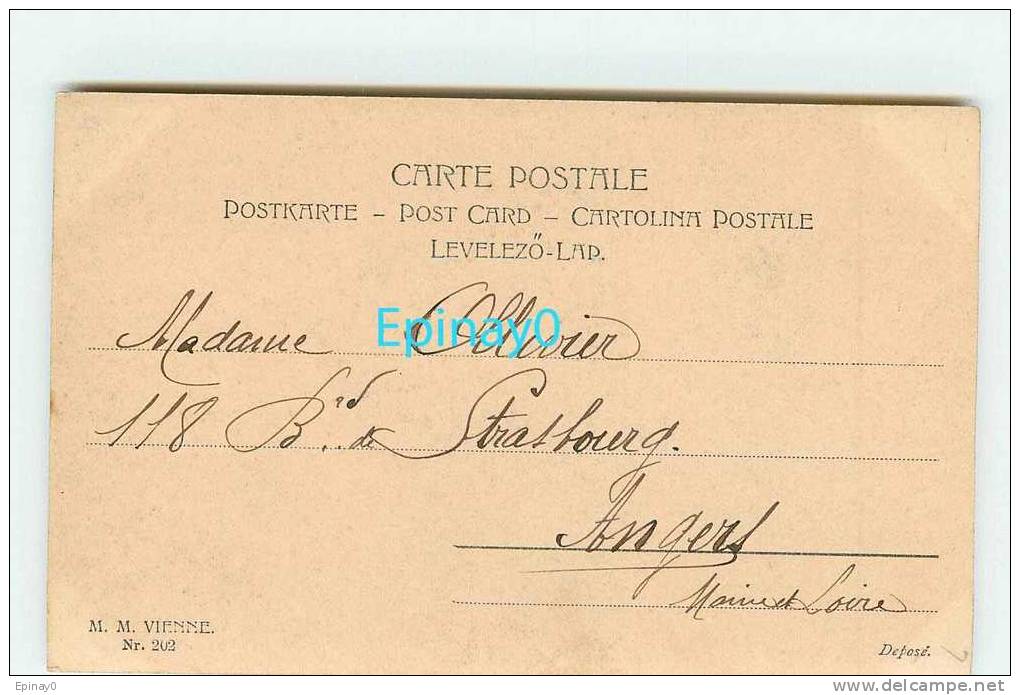 CARTE POSTALE
POSTKARTE – POST CARD – CARTOLINA POSTALE
LEVELEZŐ-LAP.
Epinay0
Madame Ollivier
118 B.rd de Strasbourg.
Angers
Maine et Loire
M. M. VIENNE.
Nr. 202
Deposé.
Epinay0
www.delcampe.net